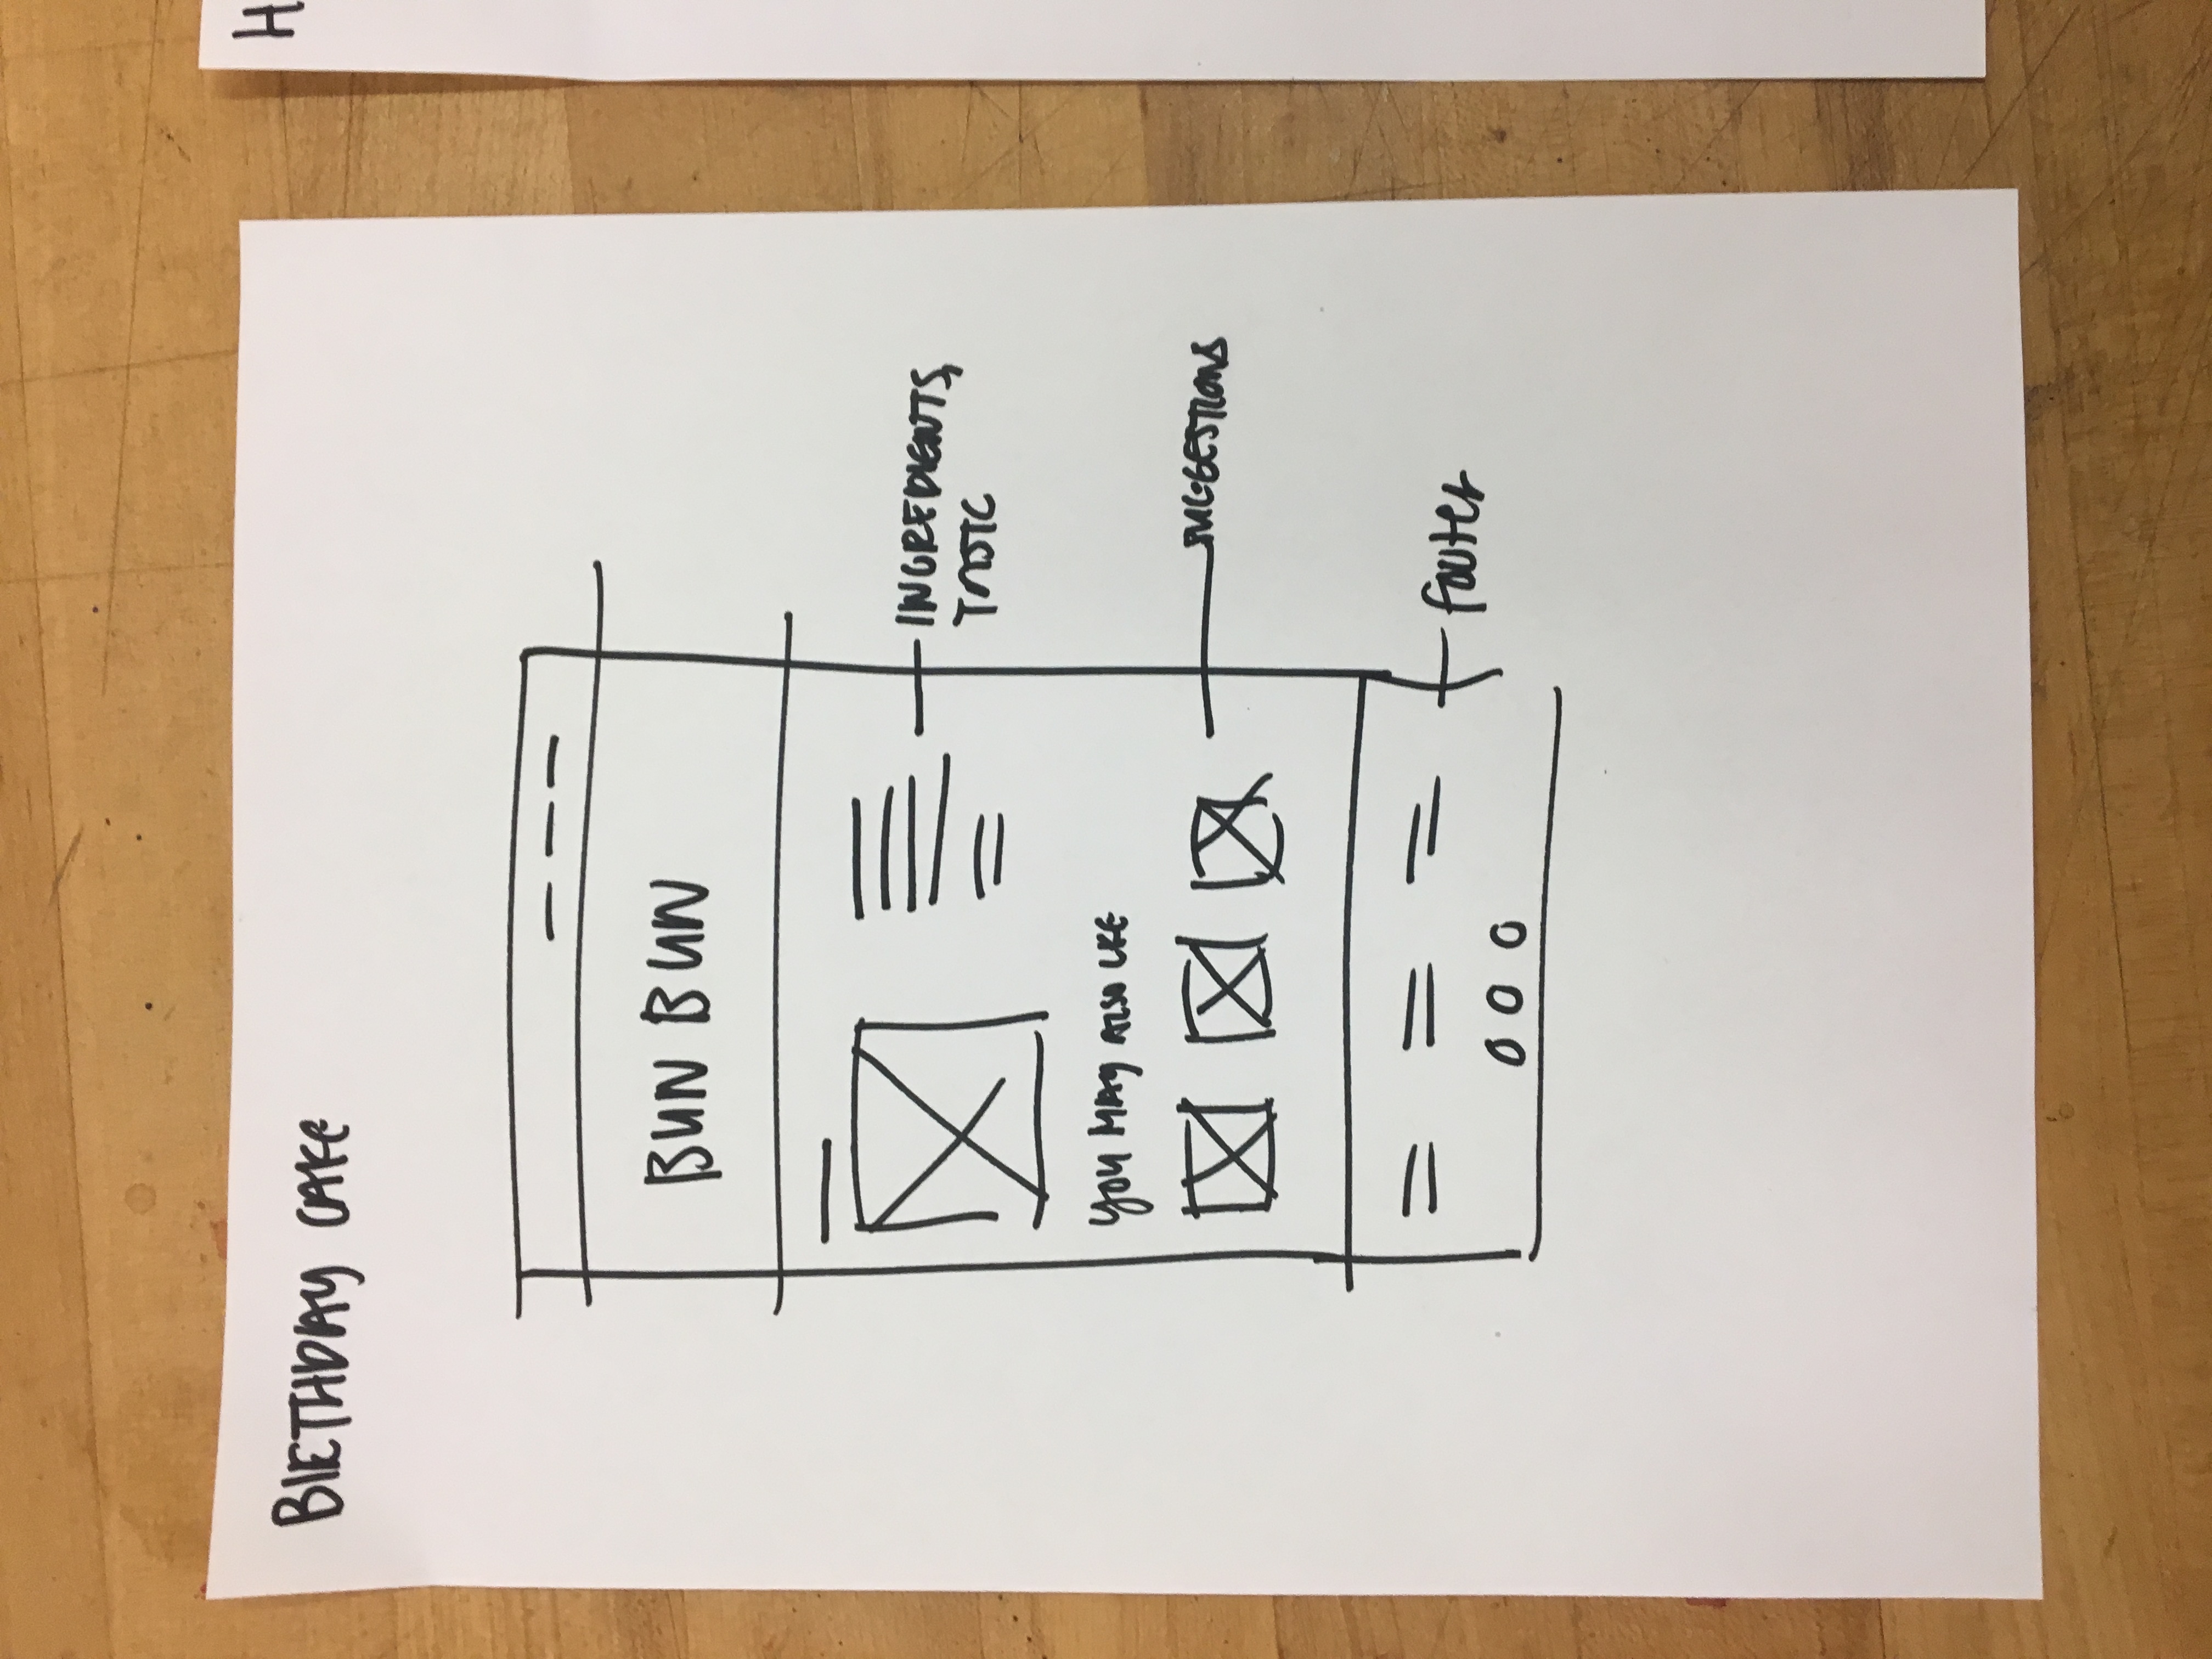 BIRTHDAY CAKE
H
BUN BUN
INGREDIENTS,
TASTE
YOU MAY ALSO LIKE
SUGGESTIONS
footer